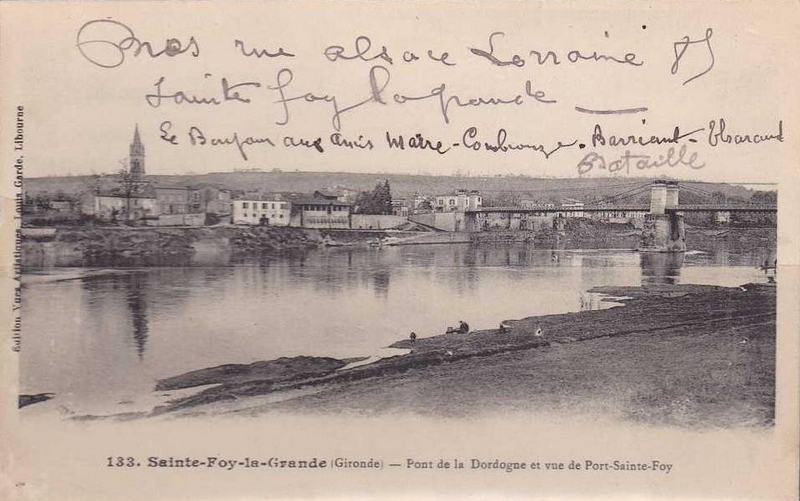 rue alsace Lorraine 85
Sainte foy la grande
Le Bonjour aux amis Maitre - Combrouze - Barriant -
Bataille
Edition Vues Artistiques, Louis Garde, Libourne
133. Sainte-Foy-la-Grande (Gironde) — Pont de la Dordogne et vue de Port-Sainte-Foy